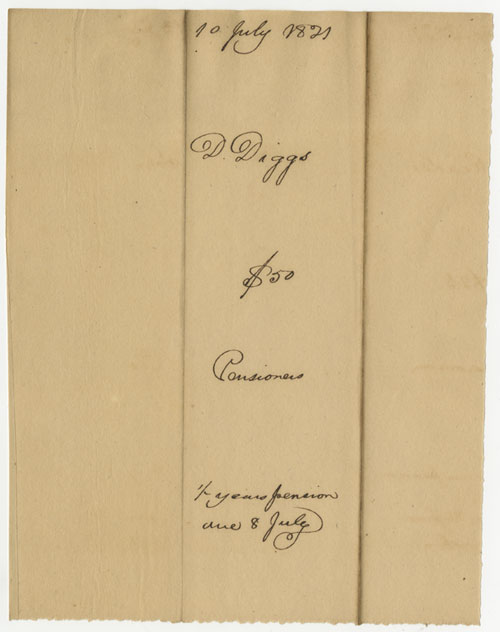 10 July 1821
D. Diggs
$50
Pensioners
¼ years pension
due 8 July